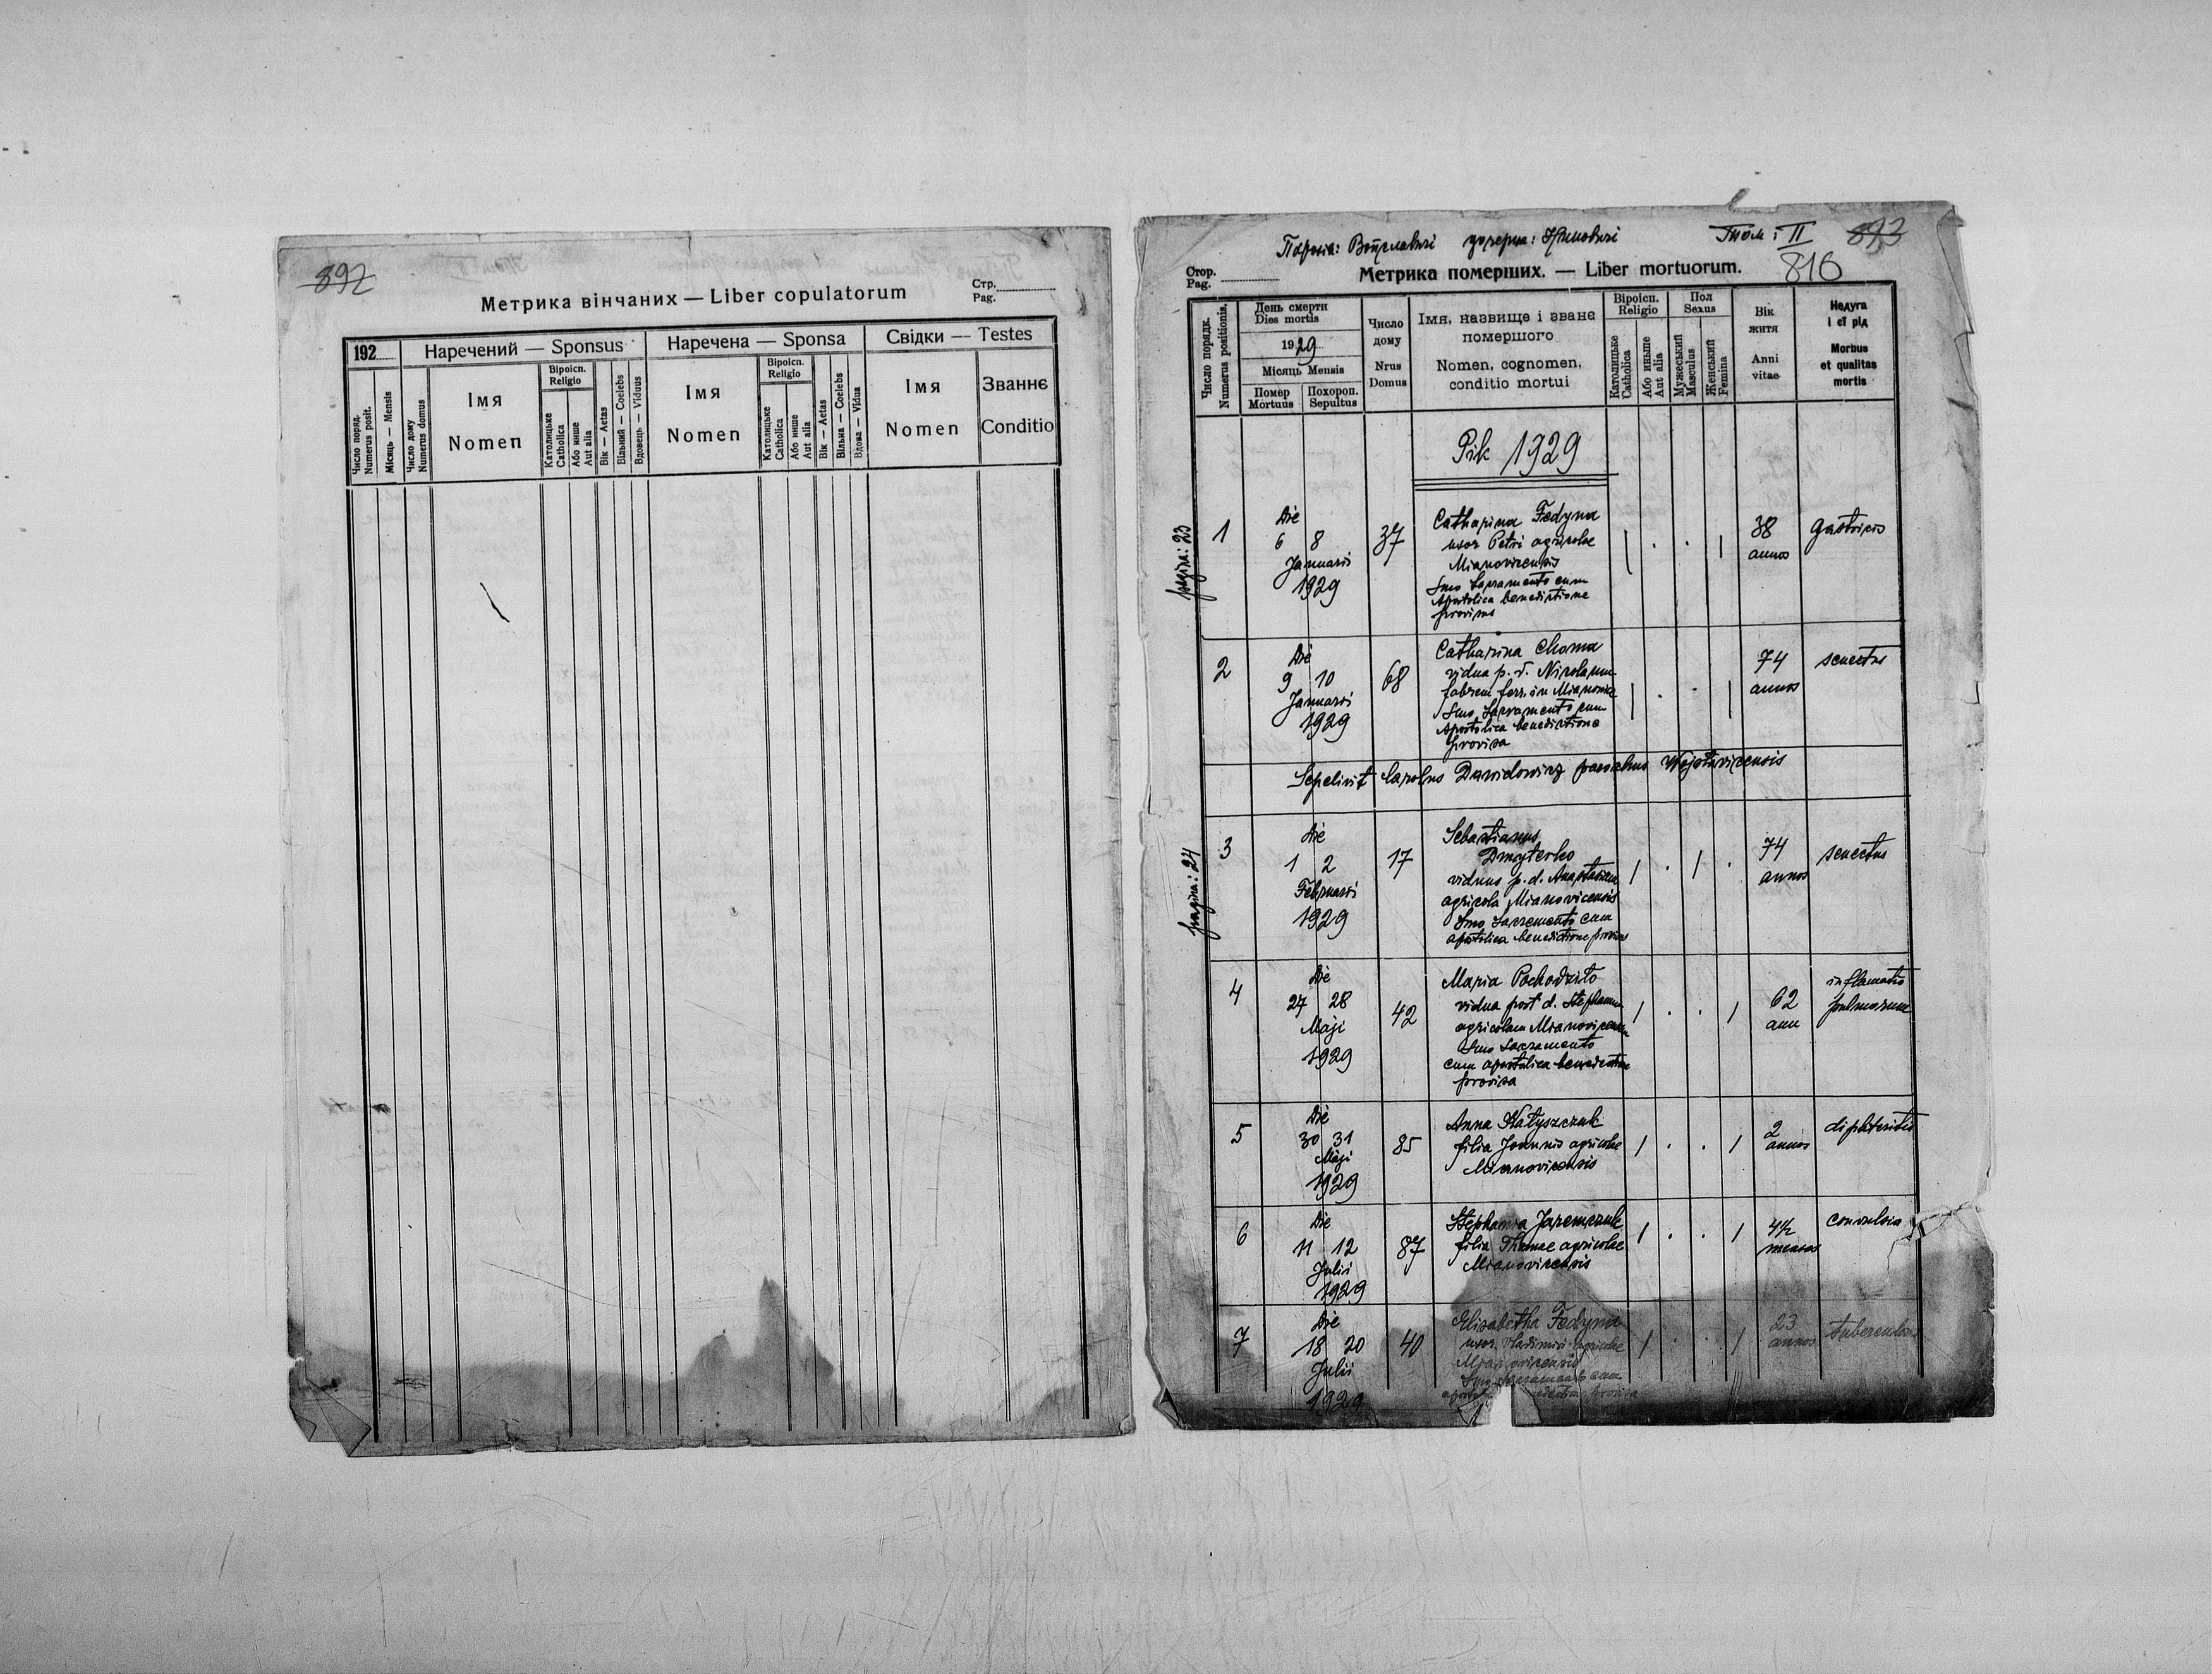 892
Метрика вінчаних — Liber copulatorum
Стр.
Pag.
192
Наречений — Sponsus
Наречена — Sponsa
Свідки — Testes
Число поряд.
Numerus posit.
Місяць — Mensis
Число дому
Numerus domus
Імя
Nomen
Віроісп.
Religio
Католицьке
Catholica
Або инше
Aut alia
Вік — Aetas
Вільний — Coelebs
Вдовець — Viduus
Імя
Nomen
Віроісп.
Religio
Католицьке
Catholica
Або инше
Aut alia
Вік — Aetas
Вільна — Coelebs
Вдова — Vidua
Імя
Nomen
Званнє
Conditio
Том: II
893
816
Стор.
Pag.
Метрика померших. — Liber mortuorum.
Число порядк.
Numerus positionis.
День смерти
Dies mortis
1929
Місяць Mensis
Помер
Mortuus
Похорон.
Sepultus
Число
дому
Nrus
Domus
Імя, назвище і званє
помершого
Nomen, cognomen,
conditio mortui
Віроісп.
Religio
Католицьке
Catholica
Або иньше
Aut alia
Пол
Sexus
Мужеський
Masculus
Женський
Femina
Вік
житя
Anni
vitae
Недуга
і єї рід
Morbus
et qualitas
mortis
Рік 1929
pagina: 23
1
Die
6 8
Januarii
1929
37
Catharina Fedyna
uxor Petri agricolae
Mianovicensis
Smo Sacramento cum
Apostolica benedictione
provisus
38
annos
2
Die
9 10
Januarii
1929
68
Catharina Choma
vidua p. d. Nicolaum
fabrum ferr. in
Smo Sacramento cum
Apostolica benedictione
provisa
74
annos
senectus
Sepelivit Carolus Dawidowicz parochus
pagina: 24
3
Die
1 2
Februarii
1929
17
Sebastianus
Dmyterko
viduus p. d.
agricola Mianovicensis
Smo Sacramento cum
apostolica benedictione provisus
74
annos
senectus
4
Die
27 28
Maji
1929
42
Maria Pochodzilo
vidua post d. Stephanum
agricolam Mianovicensem
Smo Sacramento
cum apostolica benedictione
provisa
62
ann
inflamatio
pulmonum
5
Die
30 31
Maji
1929
85
Anna
filia Joannis agricolae
Mianovicensis
2
annos
diphteritis
6
Die
11 12
Julii
1929
87
Stephania Jaremczuk
filia Thomae agricolae
Mianovicensis
menses
convulsia
7
Die
18 20
Julii
1929
40
Elisabetha Fedyna
uxor Vladimiri agricolae
Mianovicensis
23
annos